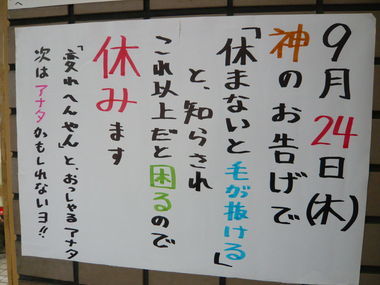 9月24日(木)
神のお告げで
「休まないと毛が抜ける」
と、知らされ
これ以上だと困るので
休みます
「変れへんやん」と、おっしゃるアナタ
次はアナタかもしれないヨ!!